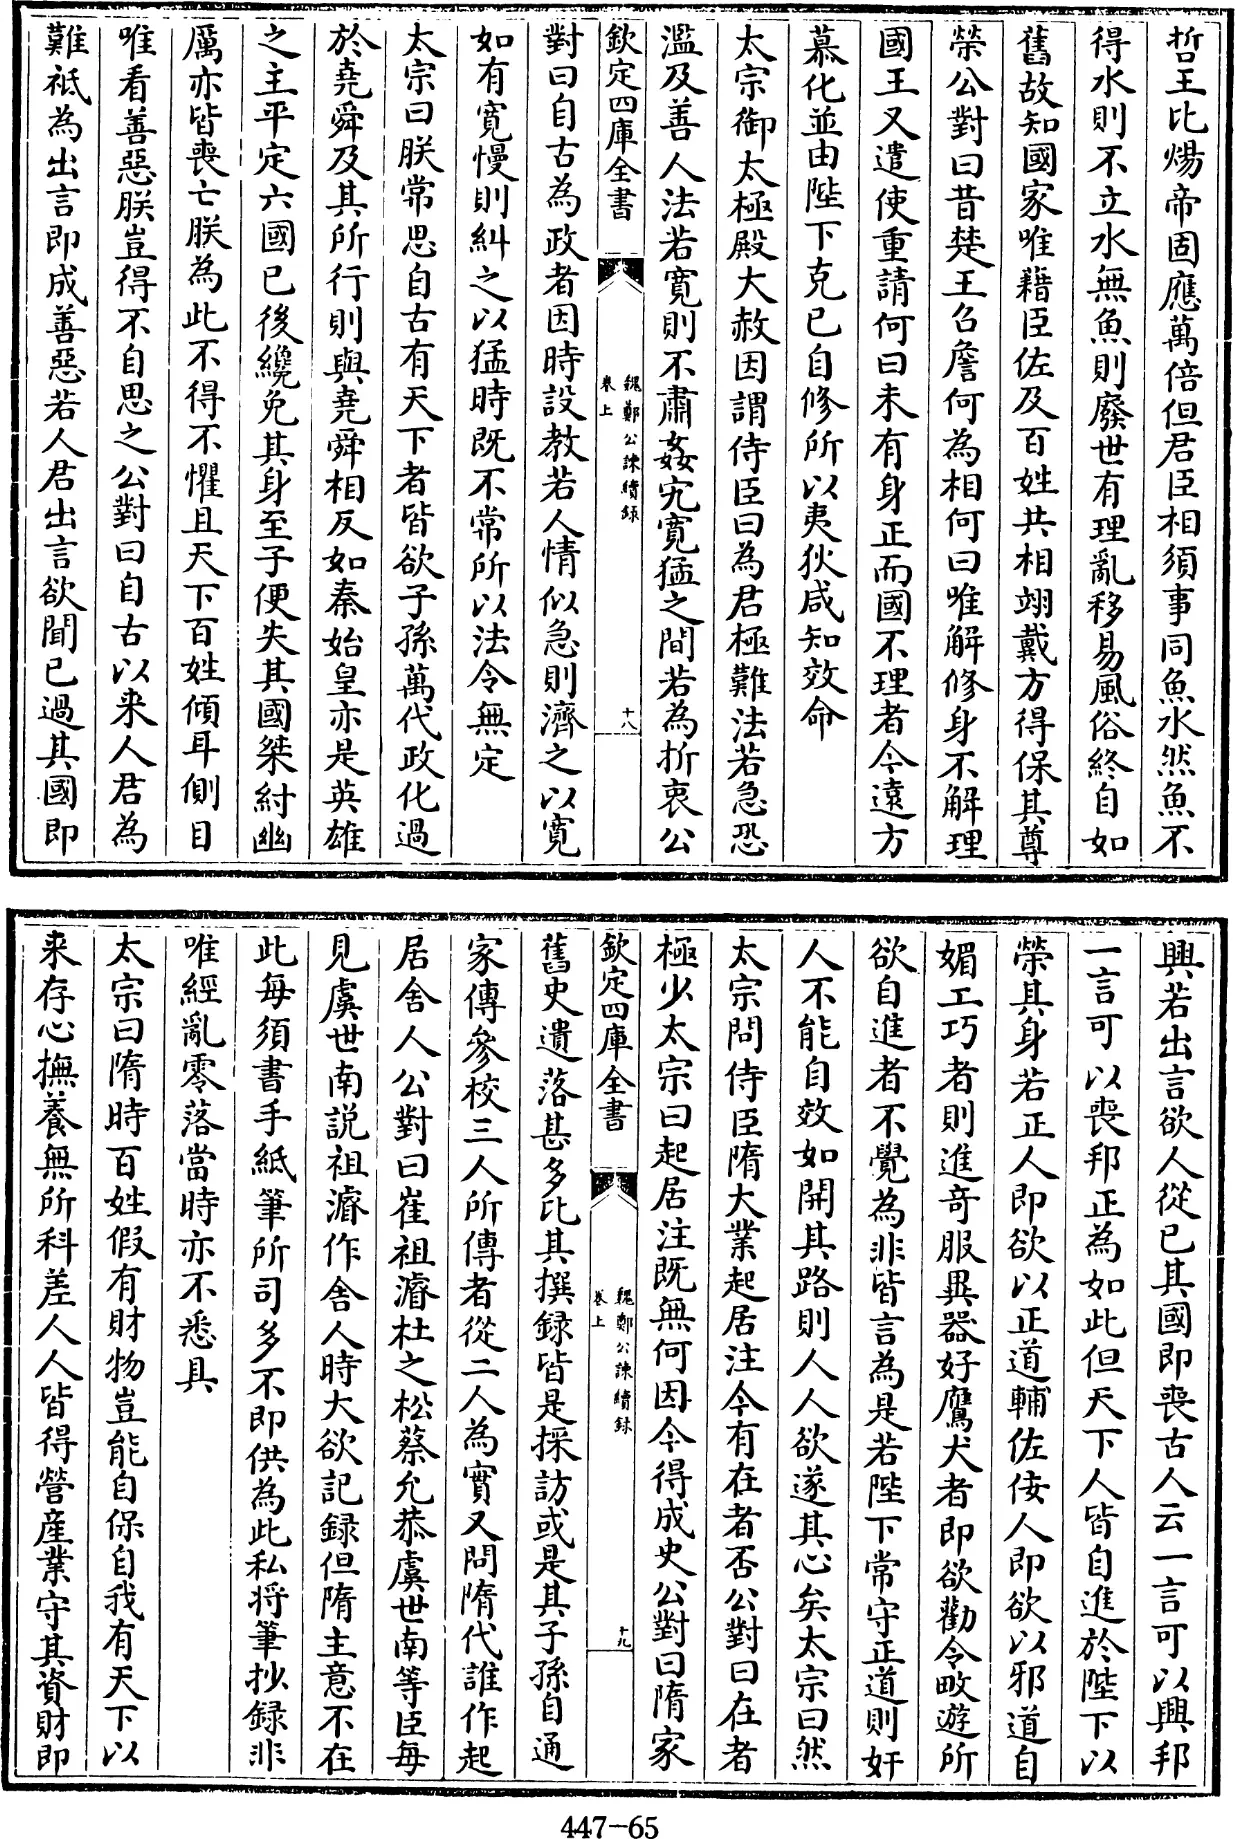 哲王比煬帝固應萬倍但君臣相須事同魚水然魚不
得水則不立水無魚則廢世有理亂移易風俗終自如
舊故知國家唯藉臣佐及百姓共相翊戴方得保其尊
榮公對曰昔楚王召詹何為相何曰唯解修身不解理
國王又遣使重請何曰未有身正而國不理者今遠方
慕化並由陛下克已自修所以夷狄咸知效命
太宗御太極殿大赦因謂侍臣曰為君極難法若急恐
濫及善人法若寛則不肅姦宄寛猛之間若為折衷公
欽定四庫全書
魏鄭公諫續録
卷上
十八
對曰自古為政者因時設教若人情似急則濟之以寛
如有寛慢則糾之以猛時既不常所以法令無定
太宗曰朕常思自古有天下者皆欲子孫萬代政化過
於堯舜及其所行則與堯舜相反如秦始皇亦是英雄
之主平定六國已後纔免其身至子便失其國桀紂幽
厲亦皆喪亡朕為此不得不懼且天下百姓傾耳側目
唯看善惡朕豈得不自思之公對曰自古以来人君為
難祇為出言即成善惡若人君出言欲聞已過其國即
興若出言欲人從已其國即喪古人云一言可以興邦
一言可以喪邦正為如此但天下人皆自進於陛下以
榮其身若正人即欲以正道輔佐佞人即欲以邪道自
媚工巧者則進奇服異器好鷹犬者即欲勸令畋遊所
欲自進者不覺為非皆言為是若陛下常守正道則奸
人不能自效如開其路則人人欲遂其心矣太宗曰然
太宗問侍臣隋大業起居注今有在者否公對曰在者
極少太宗曰起居注既無何因今得成史公對曰隋家
欽定四庫全書
魏鄭公諫續録
卷上
十九
舊史遺落甚多比其撰録皆是採訪或是其子孫自通
家傳參校三人所傳者從二人為實又問隋代誰作起
居舍人公對曰崔祖濬杜之松蔡允恭虞世南等臣每
見虞世南説祖濬作舍人時大欲記録但隋主意不在
此每須書手紙筆所司多不即供為此私将筆抄録非
唯經亂零落當時亦不悉具
太宗曰隋時百姓假有財物豈能自保自我有天下以
来存心撫養無所科差人人皆得營産業守其資財即
447-65